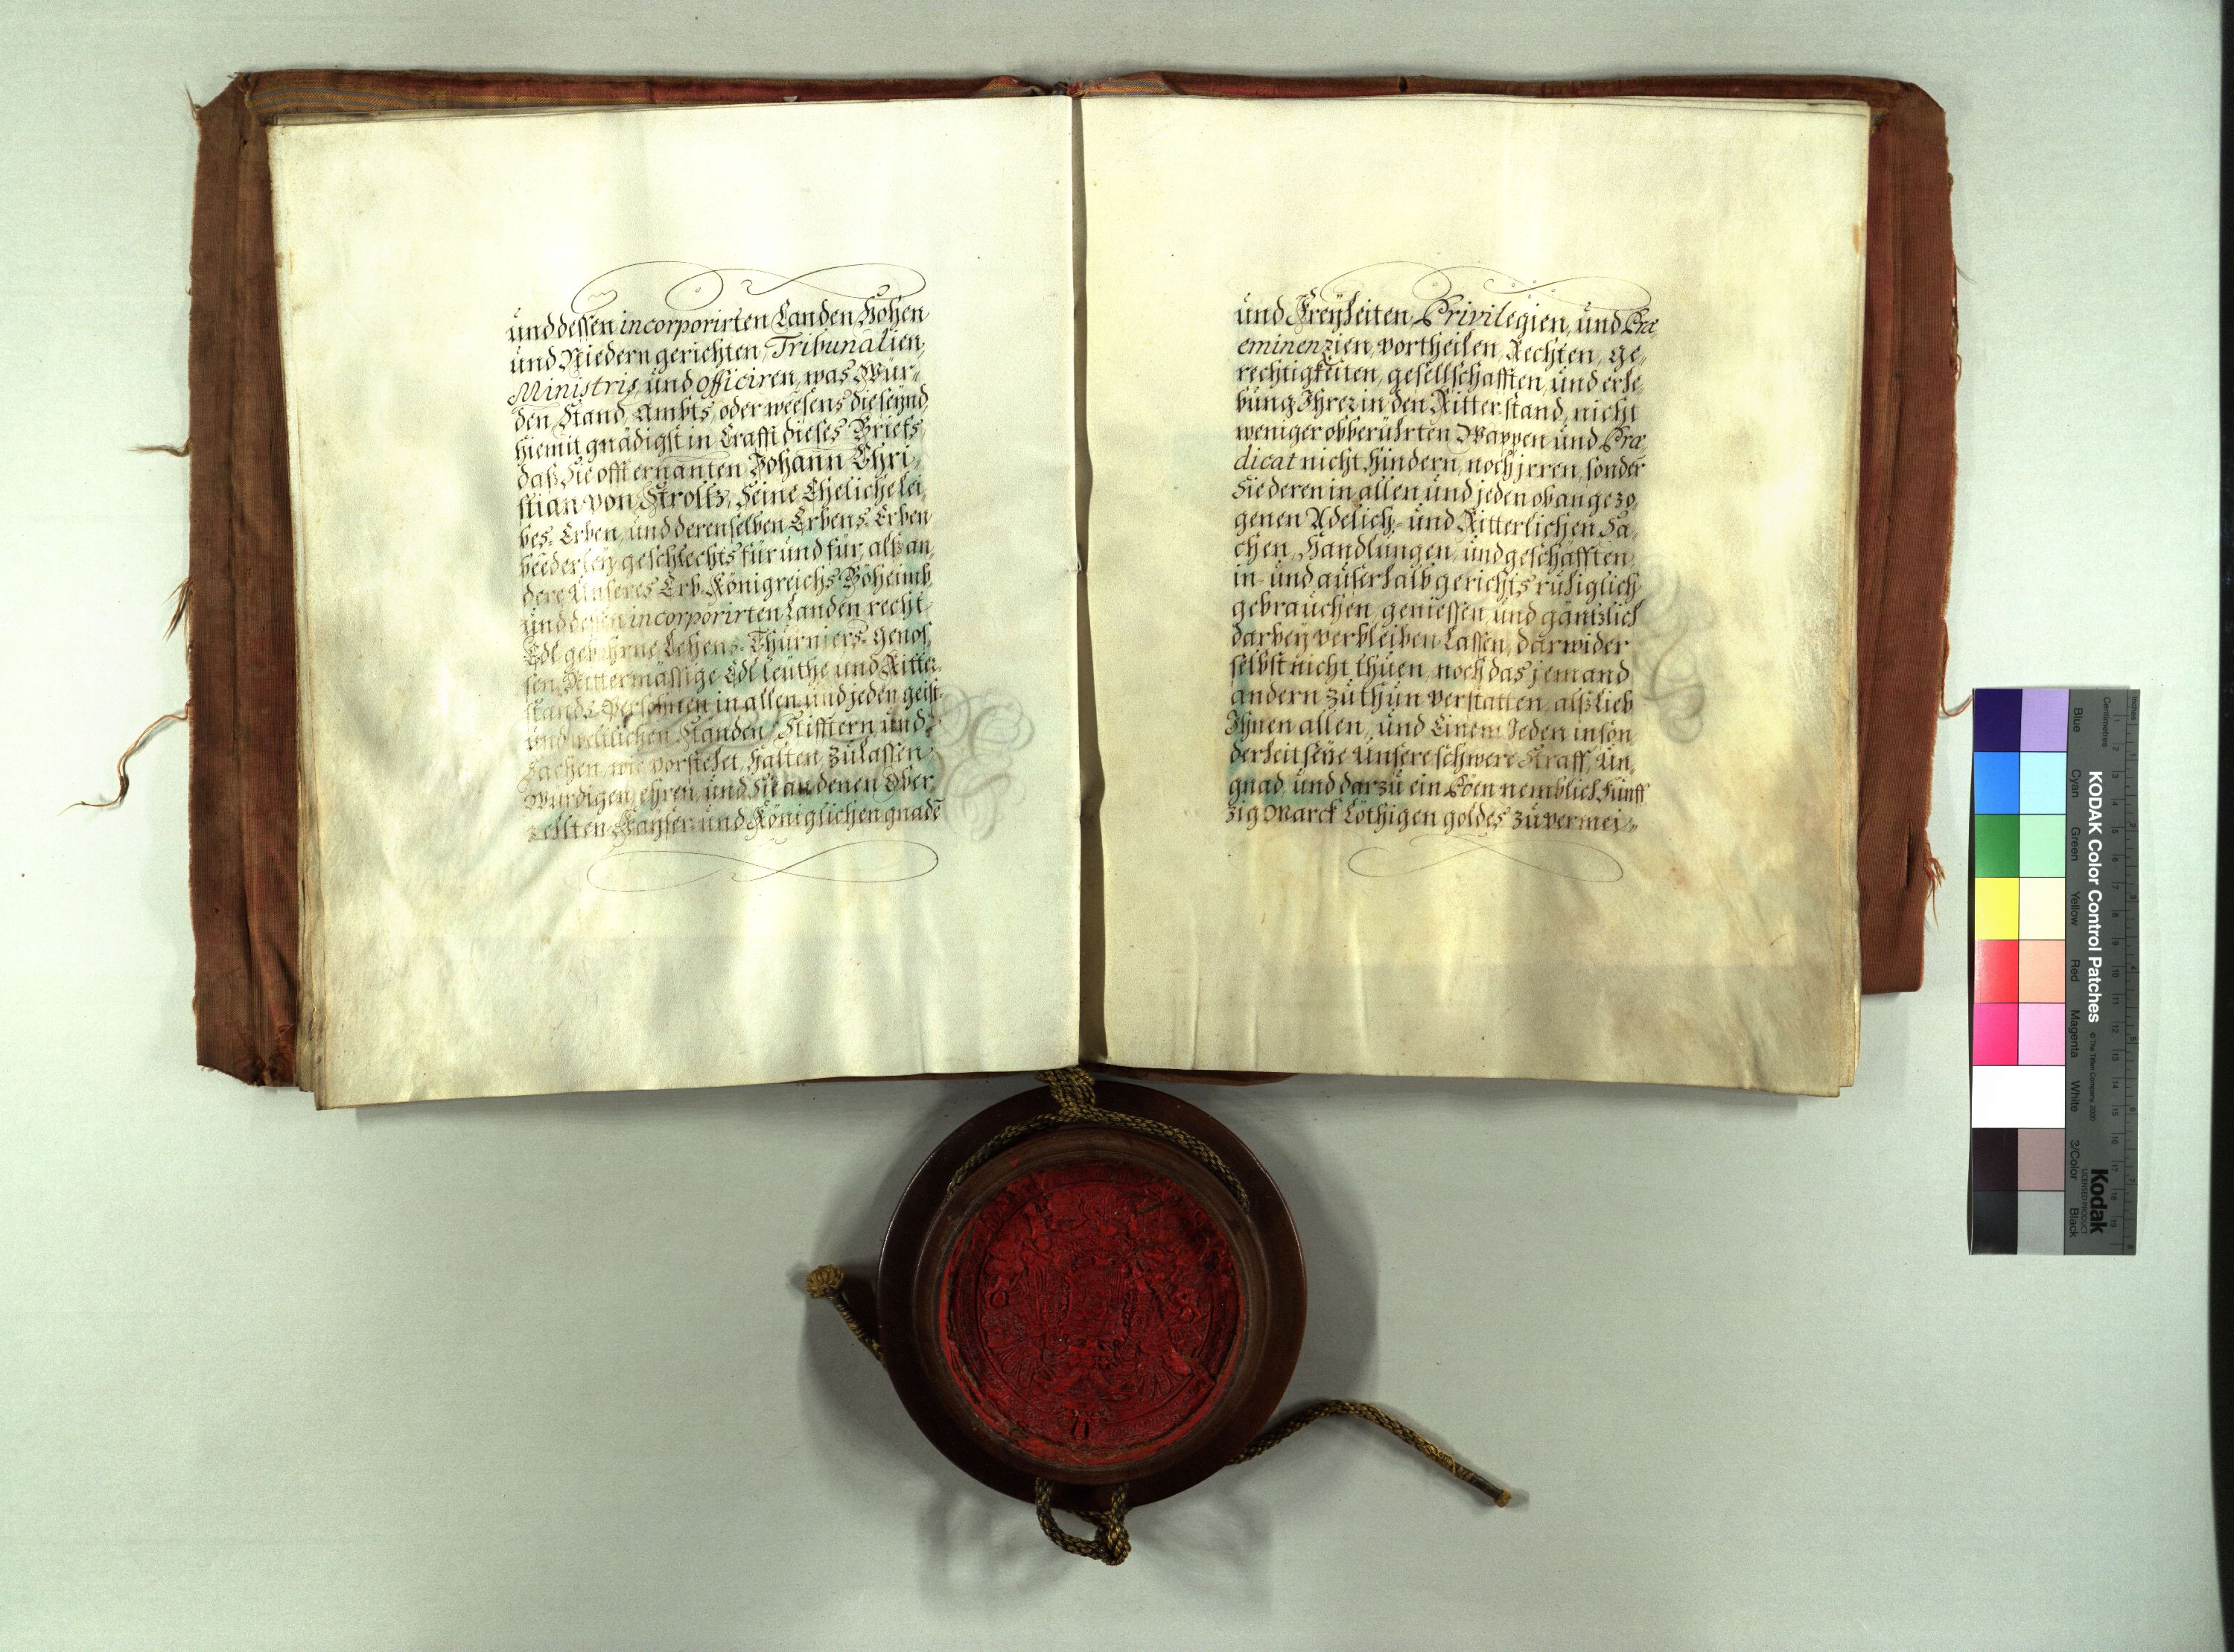 und dessen incorporirten Landen Hohen
und Niedern gerichten, Tribunalien,
Ministris, und Officiren, was Wür„
den Stand, Ambts, oder weesens die seÿnd,
hiemit gnädigst in Crafft dieses Briefs,
daß Sie offt ernanten Johann Chri„
stian von Stroltz, Seine Eheliche lei„
bes-Erben, und derenselben Erbens-Erben
beederleÿ geschlechts für und für, alß an„
dere Unseres Erb-Königreichs Böheimb
und dessen incorporirten Landen recht
Edl gebohrne Lehens-Thurniers-genos„
sen, Rittermässige Edl leüthe und Ritter„
stands-Persohnen in allen und jeden geist„
und weltlichen Ständen, Stifftern und
Sachen, wie vorstehet, halten, zulassen,
Würdigen, ehren, und Sie an denen Ober„
zehlten Kaÿser- und Königlichen gnadē
und Freÿheiten, Privilegien, und Præ
eminenzien, vortheilen, Rechten, ge„
rechtigkeiten, gesellschafften, und erhe„
bung Ihrer in den Ritter-stand, nicht
weniger obberührten Wappen und Præ
dicat nicht hindern, noch jrren, sonder
Sie deren in allen und jeden obangezo„
genen Adelich- und Ritterlichen Sa„
chen, Handlungen, und geschäfften
in- und ausserhalb gerichts rühiglich
gebrauchen, geniessen, und gäntzlich
darbeÿ verbleiben Lassen, darwider
selbst nicht thuen, noch das jemand
andern zuthün verstatten, alß lieb
Ihnen allen, und Einem Jeden inson„
derheit seÿe Unsere schwere Straff, Un„
gnad, und darzu ein Pöen nemblich Fünff
zig Marck Löthigen goldes zu vermei„
KODAK Color Control Patches
© The Tiffen Company, 2000
Kodak
LICENSED PRODUCT
Blue
Cyan
Green
Yellow
Red
Magenta
White
3/Color
Black
Inches
Centimetres
1 2 3 4 5 6 7 8 9 10 11 12 13 14 15 16 17 18 19